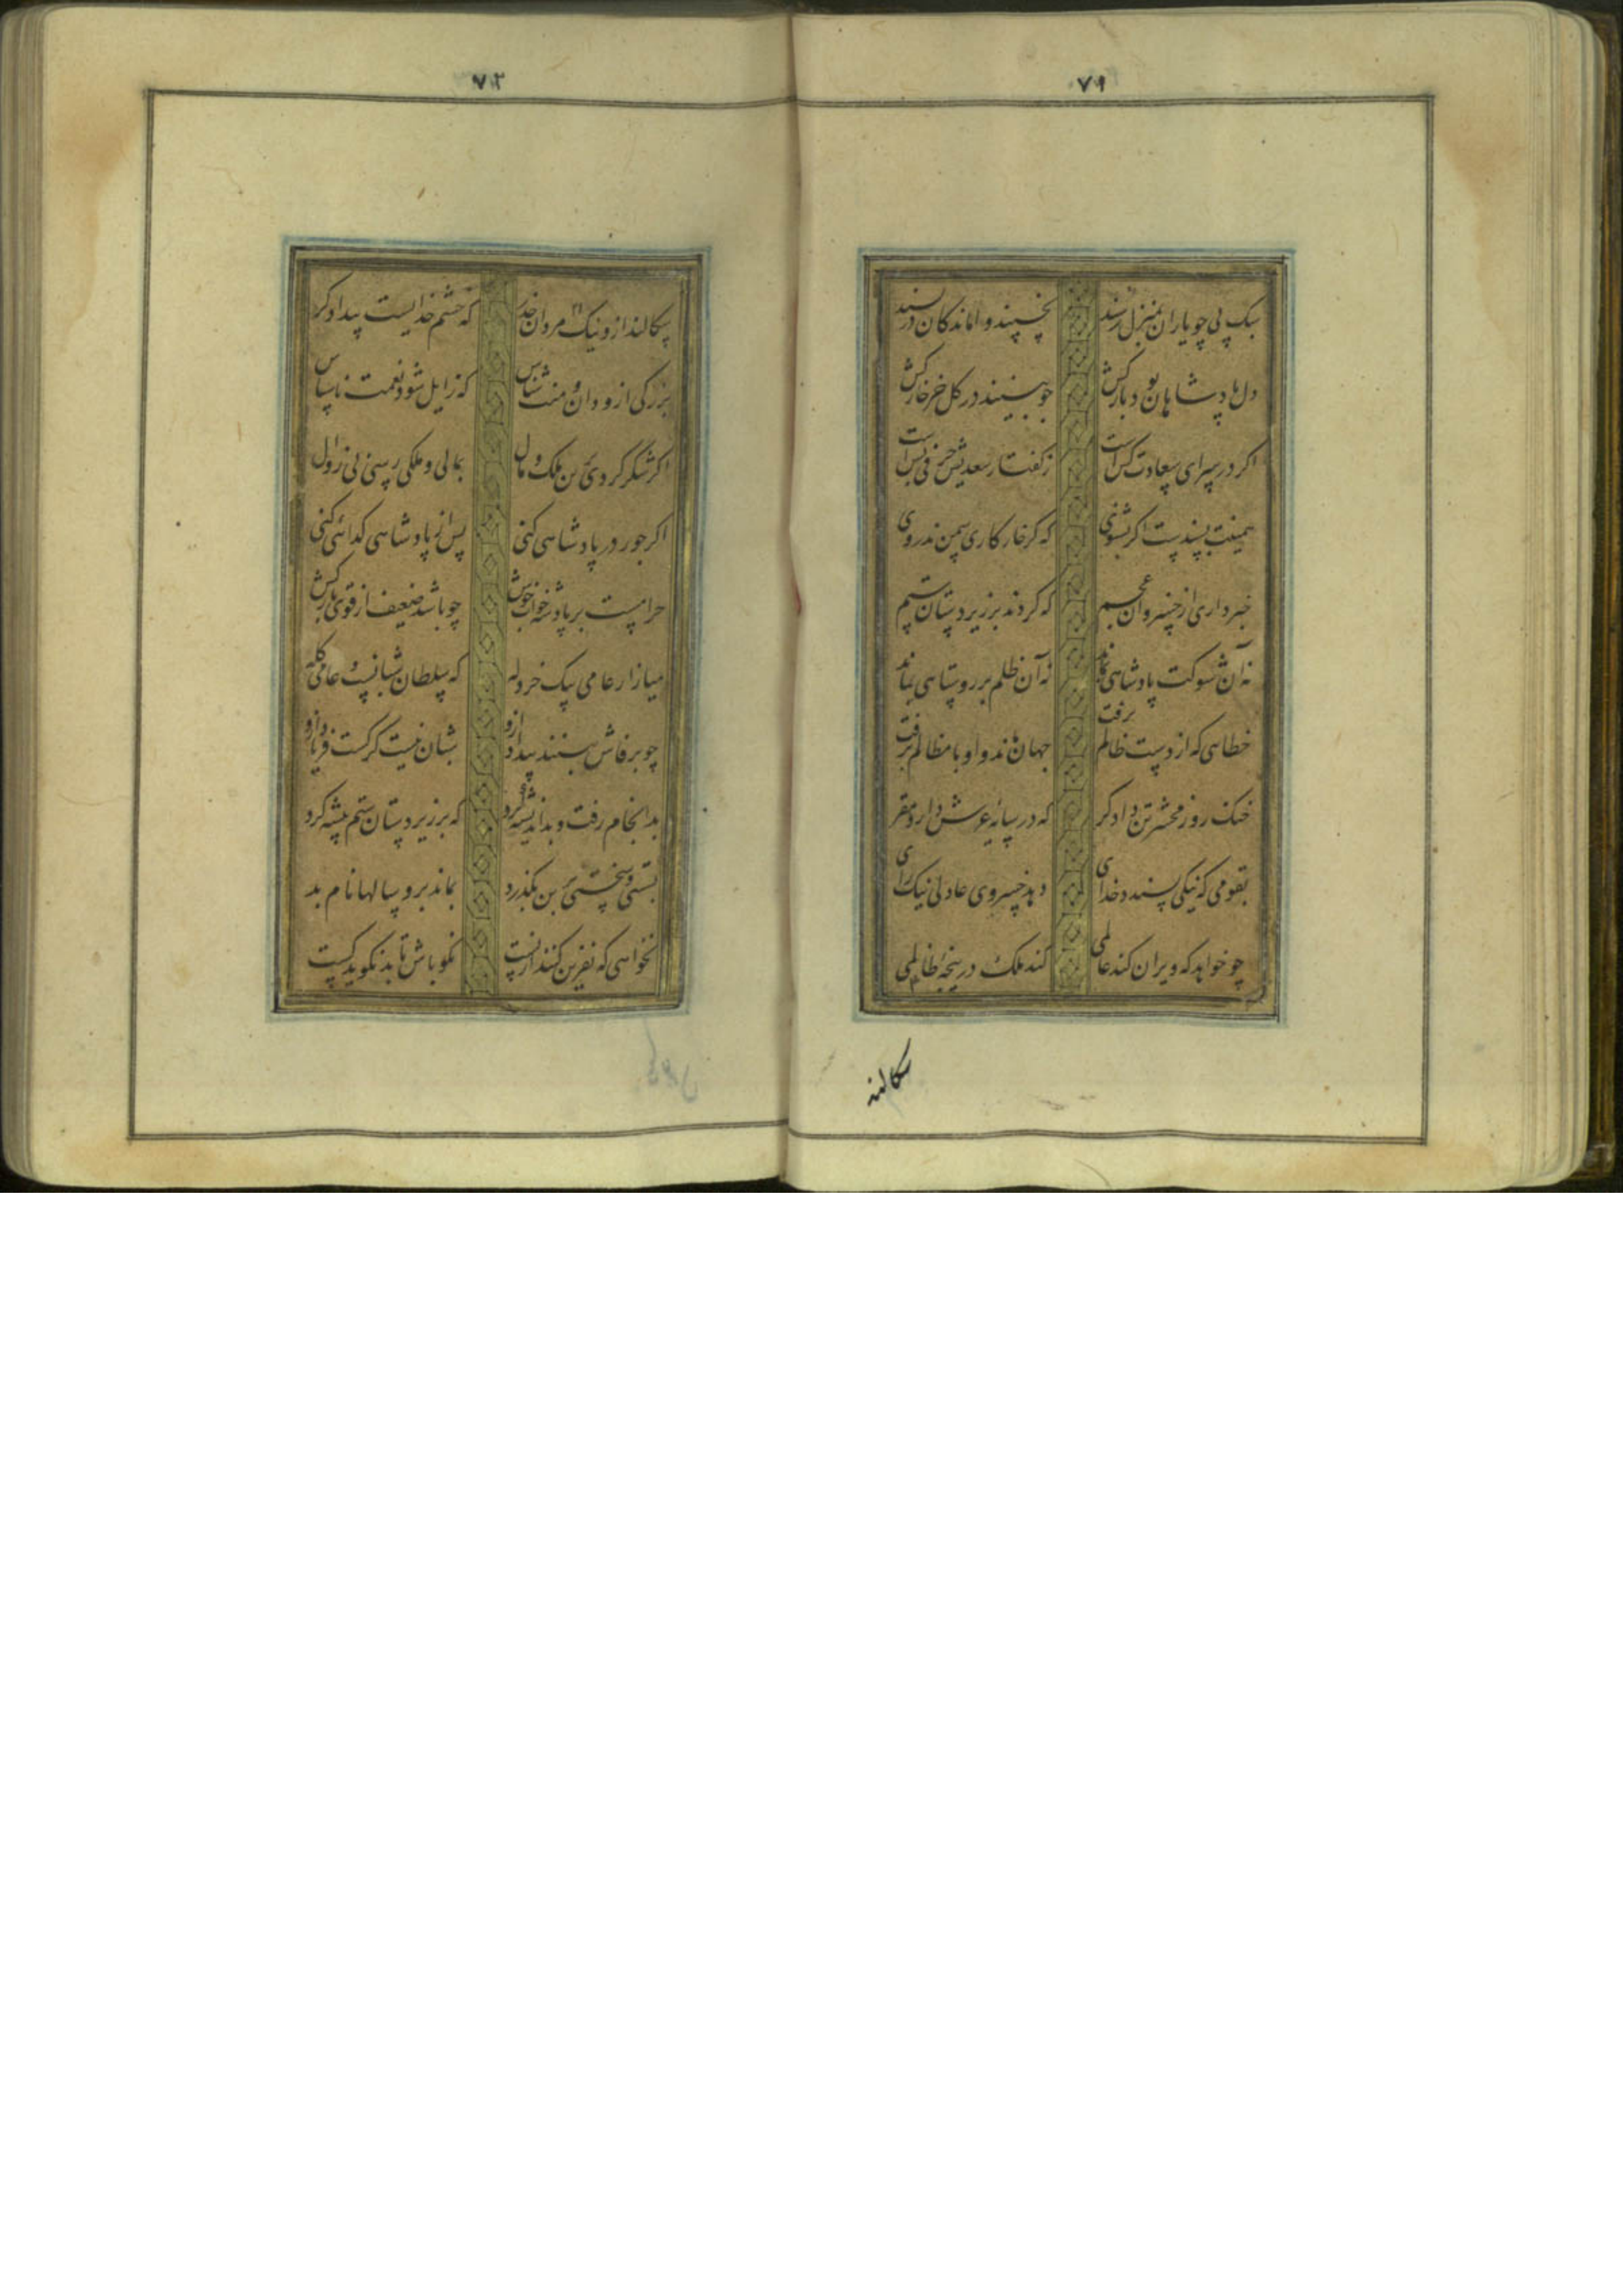 ۷۱
سبک پی چو یاران بمنزل رسند نخسپند واماندکان در رسند
دل پادشاهان بود بارکش چو بینند در کل خر خارکش
اکر در سرای سعادت کس است ز کفتار سعدیش حرفی بس است
همینت بسندست اکر بشنوی که کر خار کاری سمن ندروی
خبرداری از خسروان عجم که کردند بر زیردستان ستم
نه آن شوکت پادشاهی بماند نه آن ظلم بر روستاهی بماند
خطاهی که از دست ظالم برفت جهان ماند و او با مظالم برفت
خنک روز محشر تن دادکر که در سایهٔ عرش دارد مقر
بقومی که نیکی پسندد خدای دهد خسروی عادلی نیک رای
چو خواهد که ویران کند عالمی کند ملک در پنجهٔ ظالمی
سکالند
۷۲
سکالند ازو نیک مردان حذر که خشم خدایست بیدادکر
بزرکی ازو دان و منت شناس که زایل شود نعمت ناسپاس
اکر شکر کردی بن ملک و مال بمالی و ملکی رسی بی زوال
اکر جور در پادشاهی کنی پس از پادشاهی کدائی کنی
حرامست بر پادشه خواب خوش چو باشد ضعیف از قوی بارکش
میازار عامی بیک خردله که سلطان شبانست و عامی کله
چو برفاش بینند بیداد ازو شبان نیست کرکست فریاد ازو
بدانجام رفت و بد اندیشه کرد که بر زیردستان ستم پیشه کرد
بسستی و سختی بن بکذرد بماند برو سالها نام بد
نخواهی که نفرین کنند از پست نکو باش تا بد نکوید کست